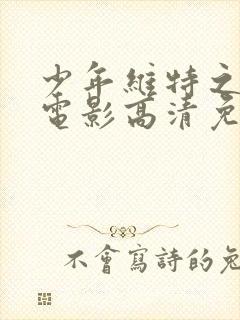 少年維特之
電影高清免
不會寫詩的兔